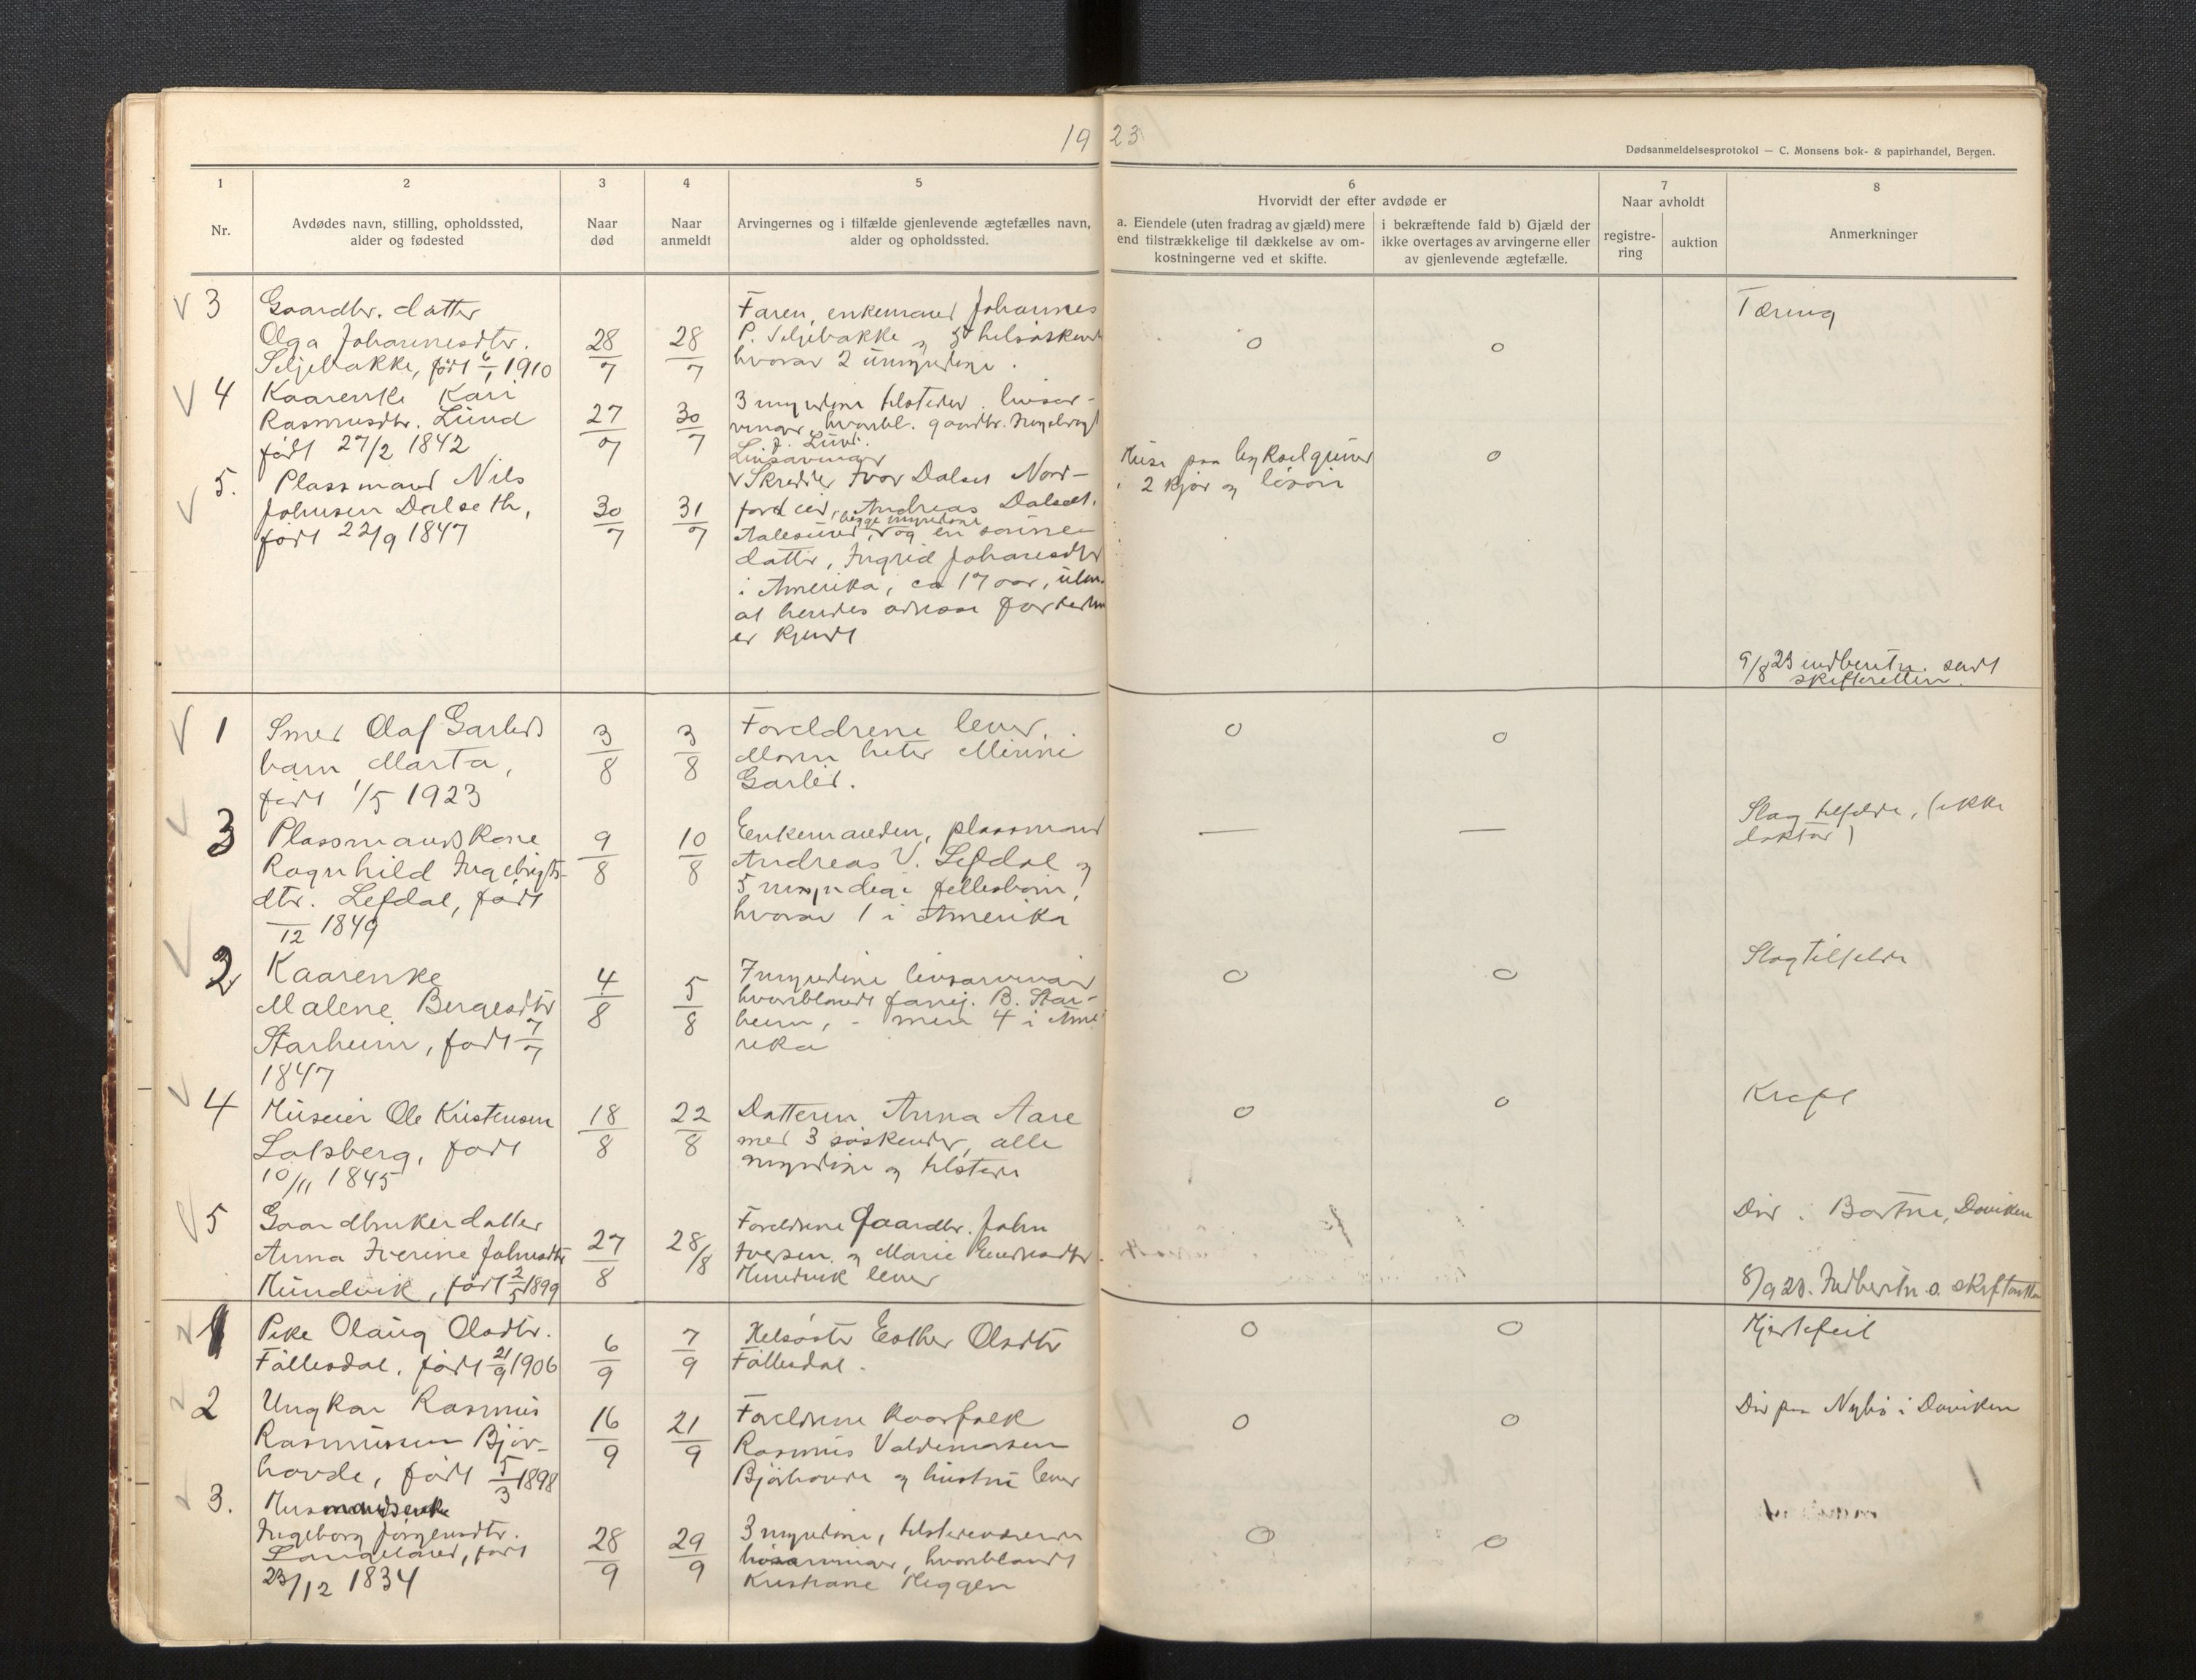 19 23
Dødsanmeldelsesprotokol — C. Monsens bok- & papirhandel, Bergen.
1
Nr.
2
Avdødes navn, stilling, opholdssted,
alder og fødested
3
Naar
død
4
Naar
anmeldt
5
Arvingernes og i tilfælde gjenlevende ægtefælles navn,
alder og opholdssted.
6
Hvorvidt der efter avdøde er
a. Eiendele (uten fradrag av gjæld) mere
end tilstrækkelige til dækkelse av om-
kostningerne ved et skifte.
i bekræftende fald b) Gjæld der
ikke overtages av arvingerne eller
av gjenlevende ægtefælle.
7
Naar avholdt
registre-
ring
auktion
8
Anmerkninger
3
Gaardbr. datter
Olga Johannesdtr.
Seljebakke, født 6/1 1910
28/7
28/7
Faren, enkemand Johannes
P. Seljebakke og helsøsken
hvorav 2 umyndige.
0
0
Tæring
4
Kaarenke Kari
Rasmusdtr. Lund
født 27/2 1842
27/7
30/7
3 myndige tilstedev. livsar-
vinger, hvorbl. gaardbr. Ingebrigt
J. Lund.
0
5.
Plassmand Nils
Johnsen Dalseth,
født 22/9 1847
30/7
31/7
Livsarvinger
Skredder Ivar Dalset Nord-
fjordeid, Andreas Dalset,
Aalesund, begge myndige og en sønne-
datter, Ingrid Johanesdtr
i Amerika, ca 17 aar, uten
at hendes adresse forresten
er kjendt
Huse paa bykselgrund
2 kjør og løsøre
9/8 23 indberetn. sendt
skifteretten.
1
Smed Olaf Garlids
barn Marta,
født 1/5 1923
3/8
3/8
Foreldrene lever.
Moren heter Minni
Garlid.
0
0
3
Plassmandskone
Ragnhild Ingebrigts-
dtr. Lefdal, født
/12 1849
9/8
10/8
Enkemanden, plassmand
Andreas V. Lefdal og
5 myndige fellesbarn,
hvorav 1 i Amerika
—
—
Slagtilfelde, (ikke
doktor)
2
Kaarenke
Malene Bergesdtr
Starheim, født 7/7
1847
4/8
5/8
7 myndige livsarvinger
hvorblandt B. Star-
heim, - men 4 i Ame
rika
0
0
Slagtilfelde
4
Huseier Ole Kristensen
Lotsberg, født
10/11 1845
18/8
22/8
Datteren Anna Aare
med 3 søskender, alle
myndige og tilstede
0
0
Kreft
5
Gaardbrukerdatter
Anna Iverine Johnsdtr
Hundvik, født 2/5 1899
27/8
28/8
Foreldrene gaardbr. John
Iversen og Marie
Hundvik lever
Død i Daviken
8/9 23. Indberetn. s. skifteretten
1
Pike Olaug Olsdtr.
Følledal, født 21/9 1906
6/9
7/9
Helsøster Esther Olsdtr
Følledal.
0
0
Hjertefeil
2
Ungkar Rasmus
Rasmussen Bjør-
hovde, født 5/3 1898
16/9
21/9
Foreldrene kaarfolk
Rasmus Valdemarsen
Bjørhovde og hustru lever
0
0
Død paa Nybø i Daviken
3.
Husmandsenke
Ingeborg Jørgensdtr.
født
23/12 1834
28/9
29/9
3 myndige, tilstedeværende
livsarvinger, hvorblandt
Kristiane Heggen
0
0